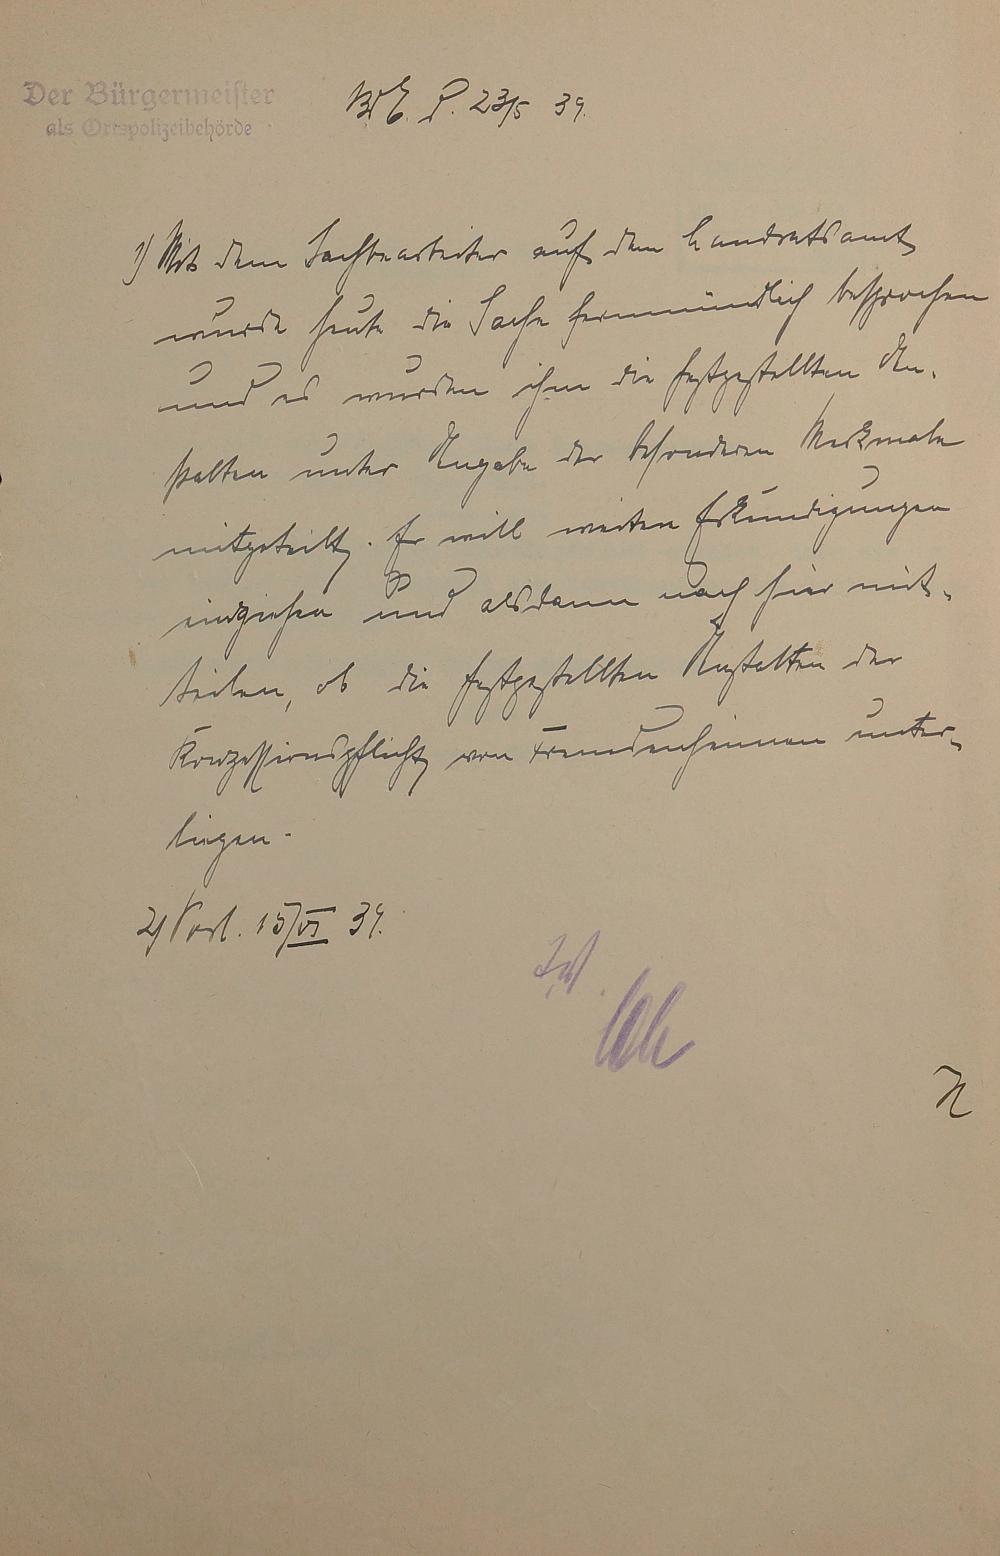 Der Bürgermeister
als Ortspolizeibehörde
23/5 39.
1) Mit dem Sachbearbeiter auf dem Landratsamt
wurde heute die Sache fernmündlich besprochen
und es wurden ihm die festgestellten An-
stalten unter Angabe der besonderen Merkmale
mitgeteilt. Er will weitere Erkundigungen
einziehen und alsdann nach hier mit-
teilen, ob die festgestellten Anstalten der
Konzessionspflicht von Fremdenheimen unter-
liegen.
2) Vorl. 15/VI 39.